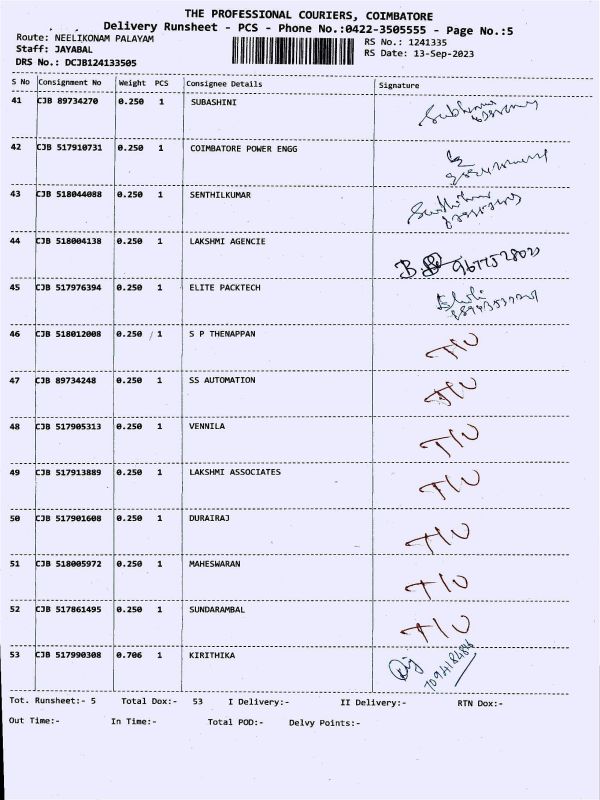 THE PROFESSIONAL COURIERS, COIMBATORE
Delivery Runsheet - PCS - Phone No.:0422-3505555 - Page No.:5
Route: NEELIKONAM PALAYAM
Staff: JAYABAL
DRS No.: DCJB124133505
RS No.: 1241335
RS Date: 13-Sep-2023
S No Consignment No Weight PCS Consignee Details Signature
41 CJB 89734270 0.250 1 SUBASHINI
42 CJB 517910731 0.250 1 COIMBATORE POWER ENGG
43 CJB 518044088 0.250 1 SENTHILKUMAR
44 CJB 518004138 0.250 1 LAKSHMI AGENCIE
45 CJB 517976394 0.250 1 ELITE PACKTECH
46 CJB 518012008 0.250 1 S P THENAPPAN T/U
47 CJB 89734248 0.250 1 SS AUTOMATION T/U
48 CJB 517905313 0.250 1 VENNILA T/U
49 CJB 517913889 0.250 1 LAKSHMI ASSOCIATES T/U
50 CJB 517901608 0.250 1 DURAIRAJ T/U
51 CJB 518005972 0.250 1 MAHESWARAN T/U
52 CJB 517861495 0.250 1 SUNDARAMBAL T/U
53 CJB 517990308 0.706 1 KIRITHIKA
Tot. Runsheet:- 5 Total Dox:- 53 I Delivery:- II Delivery:- RTN Dox:-
Out Time:- In Time:- Total POD:- Delvy Points:-